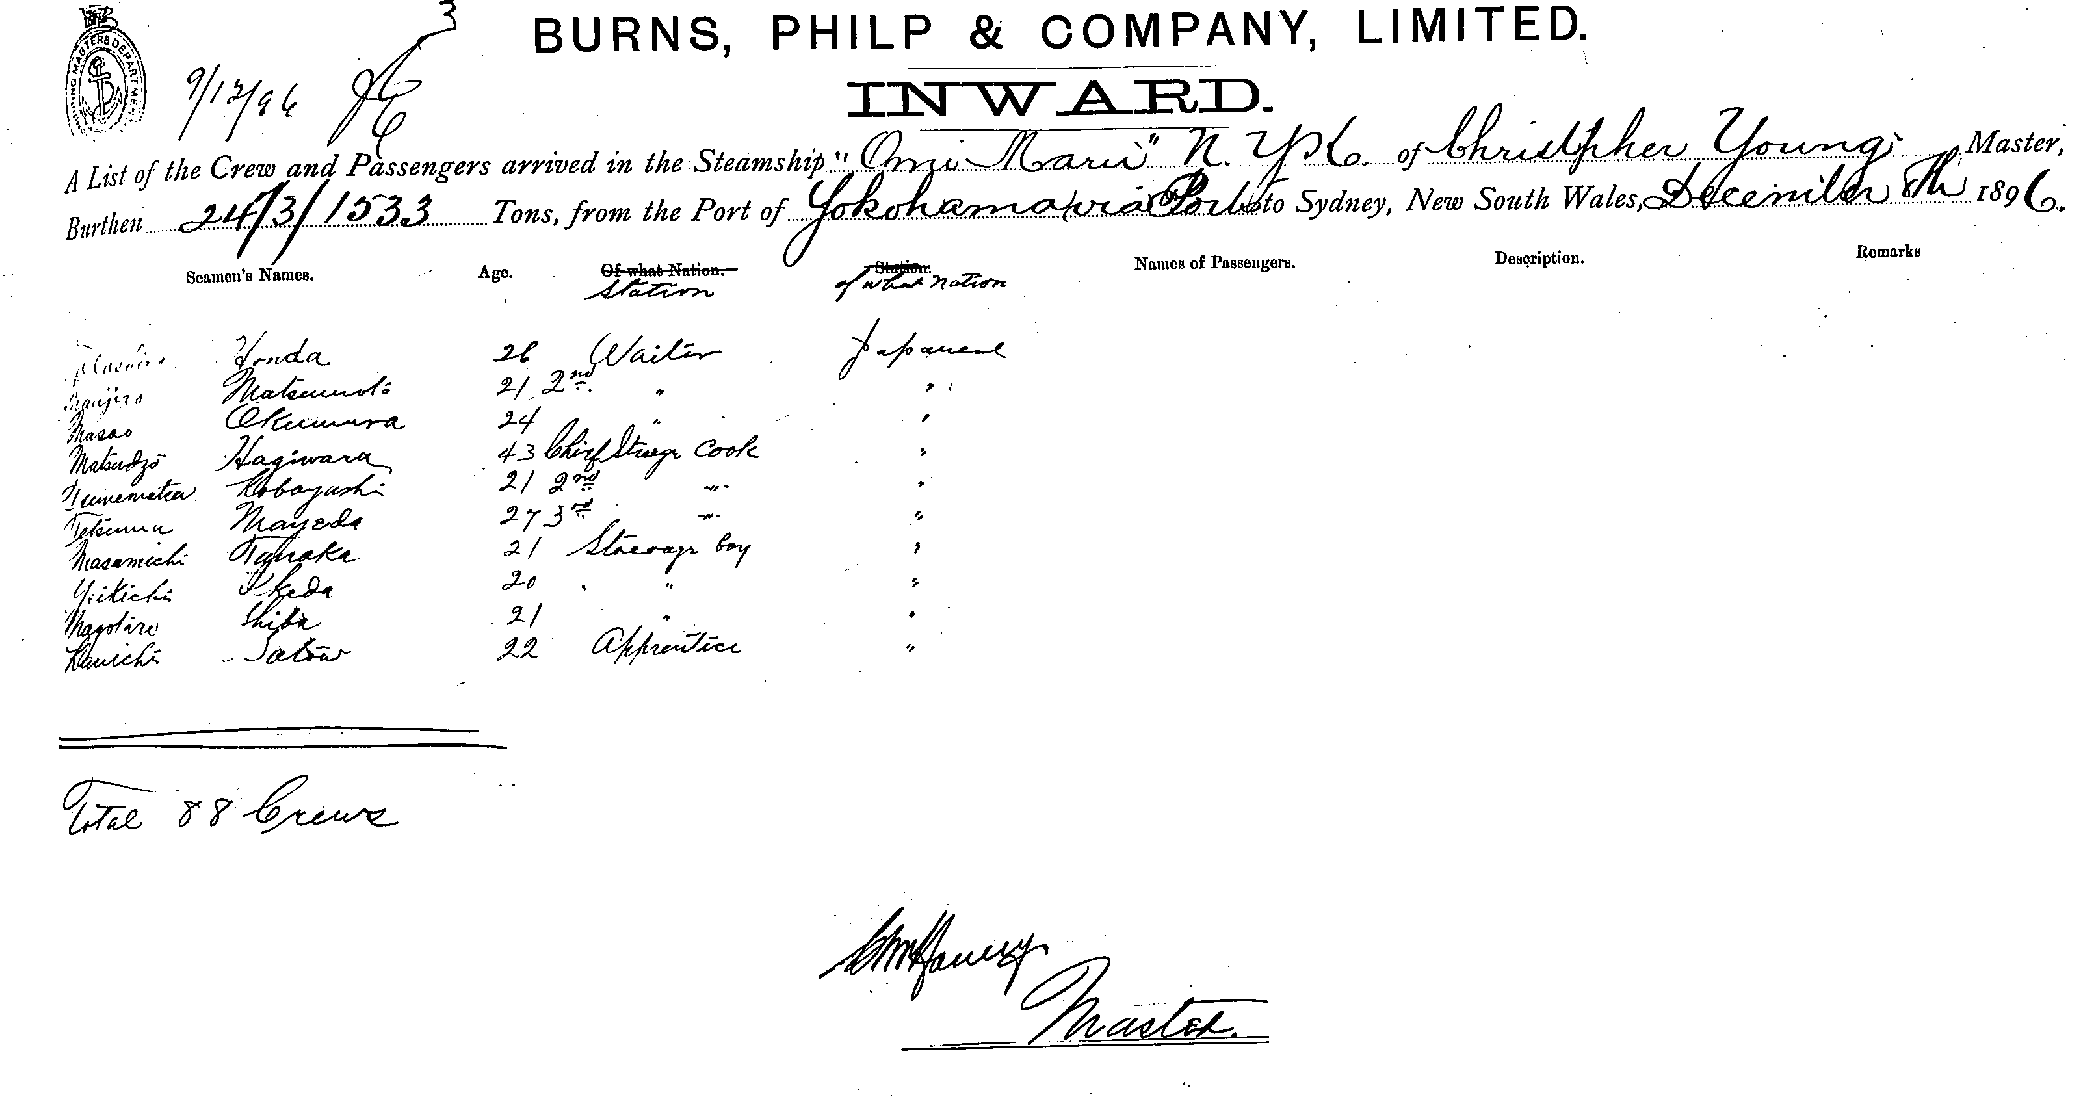 3
BURNS, PHILP & COMPANY, LIMITED.
9/12/96
INWARD.
A List of the Crew and Passengers arrived in the Steamship "Omi Maru" N. Y. K. of Christpher Young Master,
Burthen 24/3/1533 Tons, from the Port of Yokohama via Ports to Sydney, New South Wales, December 8th 1896.
Seamen's Names. Age. Of what Nation. Station. Names of Passengers. Description. Remarks
Station of what nation
Honda 26 Waiter Japanese
Matsumoto 21 2nd " "
Masao Okumura 24 " "
Matsudzo Hagiwara 43 Chief Steerge Cook "
Kobayashi 21 2nd " "
Mayeda 27 3rd " "
Masamichi Tanaka 21 Steerage boy "
Yeikichi Ikeda 20 " "
Magotaro Shiba 21 " "
Satow 22 Apprentice "
Total 88 Crews
Master.